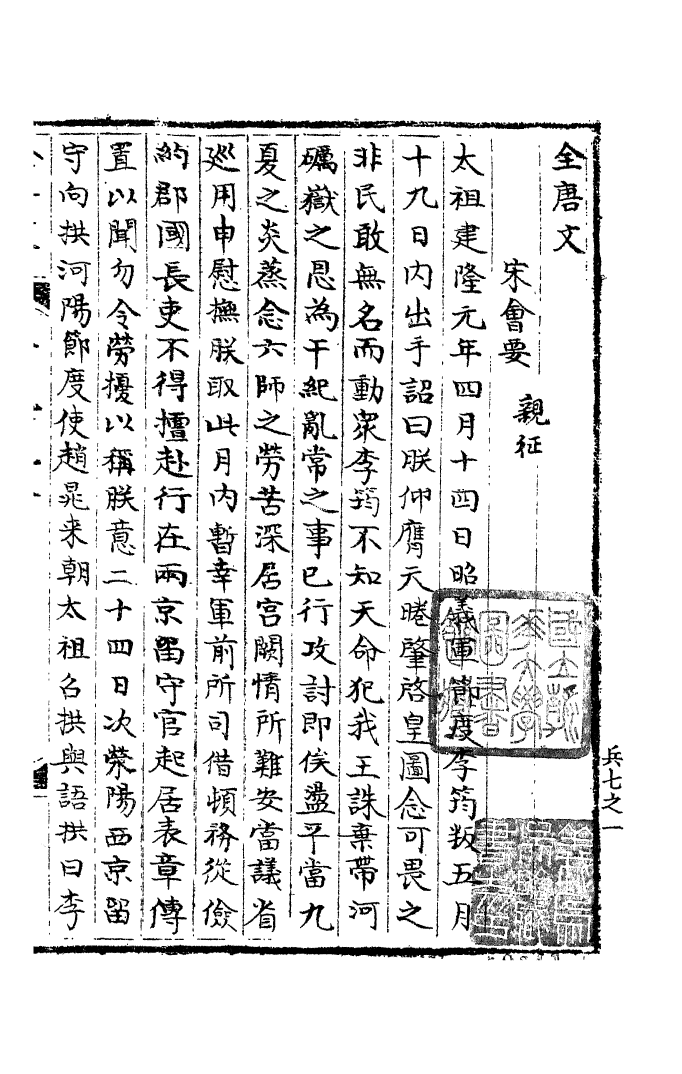 全唐文
宋會要　親征
太祖建隆元年四月十四日昭義軍節度李筠叛五月
十九日内出手詔曰朕仰膺天睠肇啓皇圖念可畏之
非民敢無名而動衆李筠不知天命犯我王誅棄帶河
礪嶽之恩為干紀亂常之事已行攻討即俟盪平當九
夏之炎蒸念六師之勞苦深居宫闕情所難安當議省
巡用申慰撫朕取此月内暫幸軍前所司借頓務從儉
約郡國長吏不得擅赴行在兩京留守官起居表章傳
置以聞勿令勞擾以稱朕意二十四日次滎陽西京留
守向拱河陽節度使趙晁来朝太祖召拱與語拱曰李
兵七之一